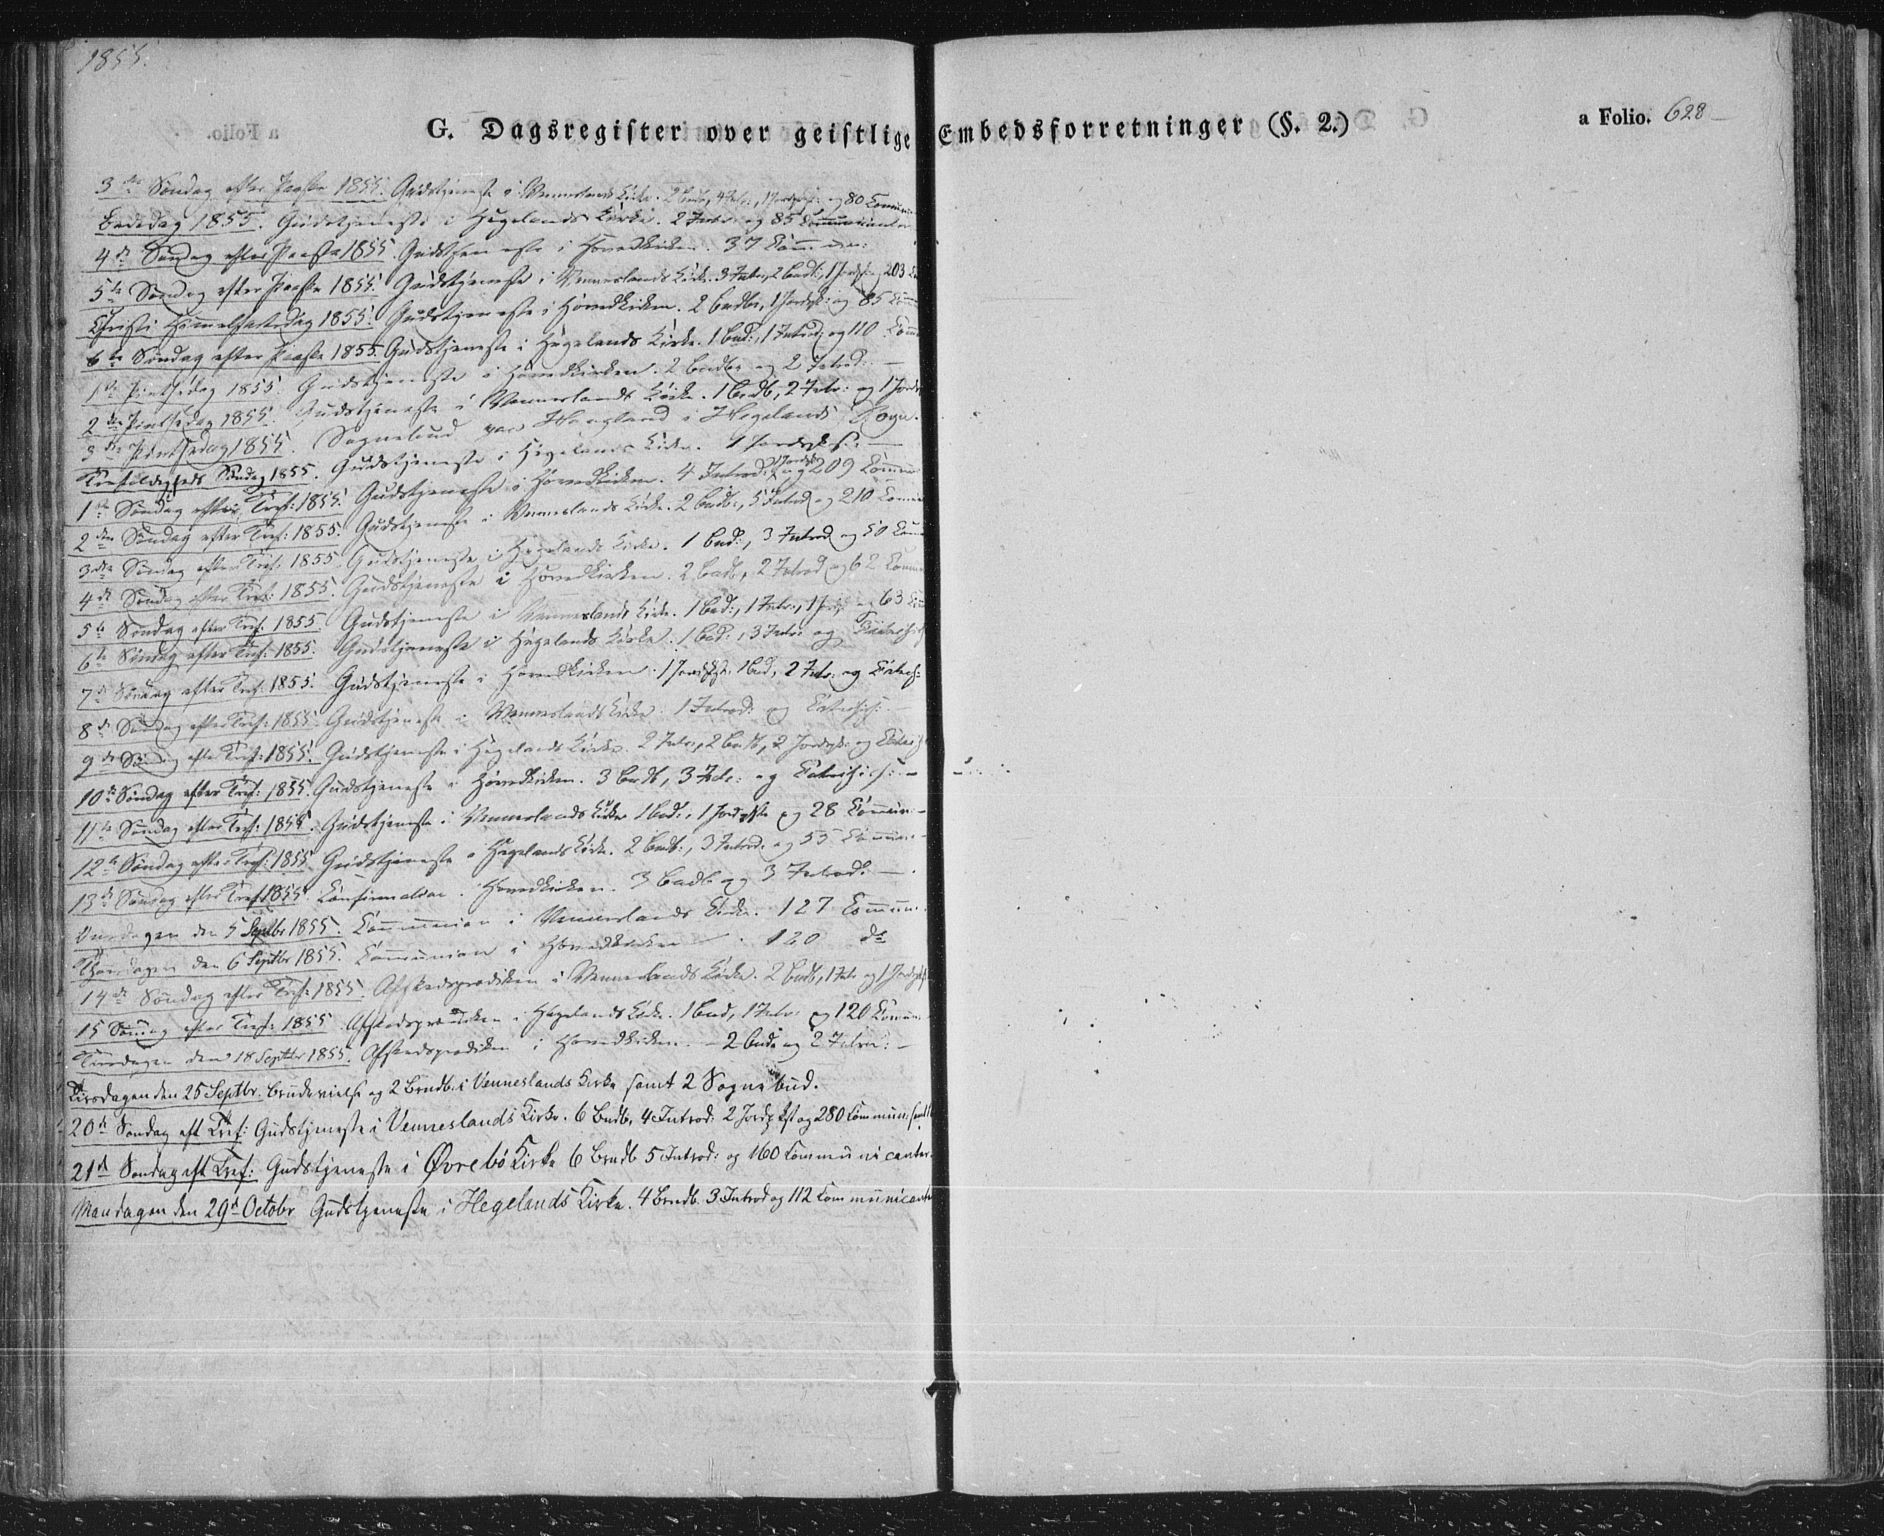 1855.
G. Dagsregister over geistlige Embedsforretninger (§. 2.)
a Folio. 628
3die Søndag efter Paaske 1855. Gudstjeneste i Vennerslands Kirke. 2 Barnd, 4 Intr:, 1 Jordpk: og 80 Commun
Bededag 1855. Gudstjeneste i Hægelands Kirke. 2 Intr: og 85 Communicanter
4de Søndag efter Paaske 1855. Gudstjeneste i Hovedkirken. 37 Commun:
5te Søndag efter Paaske 1855. Gudstjeneste i Vennerslands Kirke. 3 Intr, 2 barnd:, 1 Jordpk: og 203
Christi Himmelfartsdag 1855. Gudstjeneste i Hovedkirken. 2 barndb, 1 Jordpk: og 85 Comm
6te Søndag efter Paaske 1855. Gudstjeneste i Hægelands Kirke. 1 bad:, 1 Introd: og 110 Comm
1ste Pintsedag 1855. Gudstjeneste i Hovedkirken. 2 barndb og 2 Introd:
2den Pintsedag 1855. Gudstjeneste i Vennerslands Kirke. 1 barndb, 2 Intr: og 1 Jordp
3die Pintsedag 1855. Sognebud paa Haagland i Hægelands Sogn.
Trefoldigheds Søndag 1855. Gudstjeneste i Hægelands Kirke. 1 Jordpk:
1ste Søndag efter Tref: 1855. Gudstjeneste i Hovedkirken. 4 Introd: 1 Jordpk og 209 Commun
2den Søndag efter Tref: 1855. Gudstjeneste i Vennerslands Kirke. 2 barndb:, 5 Introd og 210 Commun
3die Søndag efter Tref: 1855. Gudstjeneste i Hægelands Kirke. 1 bad:, 3 Introd og 50 Com
4de Søndag efter Tref: 1855. Gudstjeneste i Hovedkirken. 2 barndb, 2 Introd og 62 Comm
5te Søndag efter Tref. 1855. Gudstjeneste i Vennerslands Kirke. 1 bad:, 1 Intr:, 1 Jordp og 63
6te Søndag efter Tref: 1855. Gudstjeneste i Hægelands Kirke. 1 bad:, 3 Intr: og
7de Søndag efter Tref: 1855. Gudstjeneste i Hovedkirken. 1 Jordpk. 1 bad, 2 Intr: og Catech:
8de Søndag efter Tref: 1855. Gudstjeneste i Vennerslands Kirke. 1 Introd: og
9de Søndag efter Tref: 1855. Gudstjeneste i Hægelands Kirke. 2 Intr:, 2 barndb, 2 Jordpk: og
10de Søndag efter Tref: 1855. Gudstjeneste i Hovedkirken. 3 barndb, 3 Intr: og
11te Søndag efter Tref: 1855. Gudstjeneste i Vennerslands Kirke 1 bad:, 1 Jordpk og 28 Commun:
12te Søndag efter Tref: 1855. Gudstjeneste i Hægelands Kirke. 2 barndb:, 3 Introd. og 55 Commun:
13de Søndag efter Tref 1855. Confirmation i Hovedkirken. 3 barndb og 3 Introd:
Onsdagen den 5 Septbr 1855. Communion i Vennerslands Kirke. 127 Commun:
Thorsdagen den 6 Septbr 1855. Communion i Hovedkirken. 120 do
14de Søndag efter Tref: 1855. Afskedsprædiken i Vennerslands Kirke. 2 barndb, 1 Intr og 1 Jordpk
15 Søndag efter Tref: 1855. Afskedsprædiken i Hægelands Kirke. 1 bad, 1 Intr: og 120 Commun:
Tirsdagen den 18 Septbr 1855. Afskedsprædiken i Hovedkirken. 2 barndb og 2 Introd:
Tirsdagen den 25 Septbr. Brudevielse og 2 Brndb. i Venneslands Kirke samt 2 Sognebud.
20de Søndag eft Tref: Gudstjeneste i Venneslands Kirke. 6 Bndb, 4 Introd: 2 Jordpkst og 280 Commun: samt
21de Søndag eft Tref: Gudstjeneste i Øvrebø Kirke 6 Brndb 5 Introd: og 160 Communicanter
Mandagen den 29de Octobr Gudstjeneste i Hegelands Kirke. 4 Brndb. 3 Introd og 112 Communicante